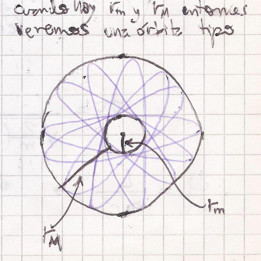 cuando hay rm y rM entonces
veremos una órbita tipo
rm
rM